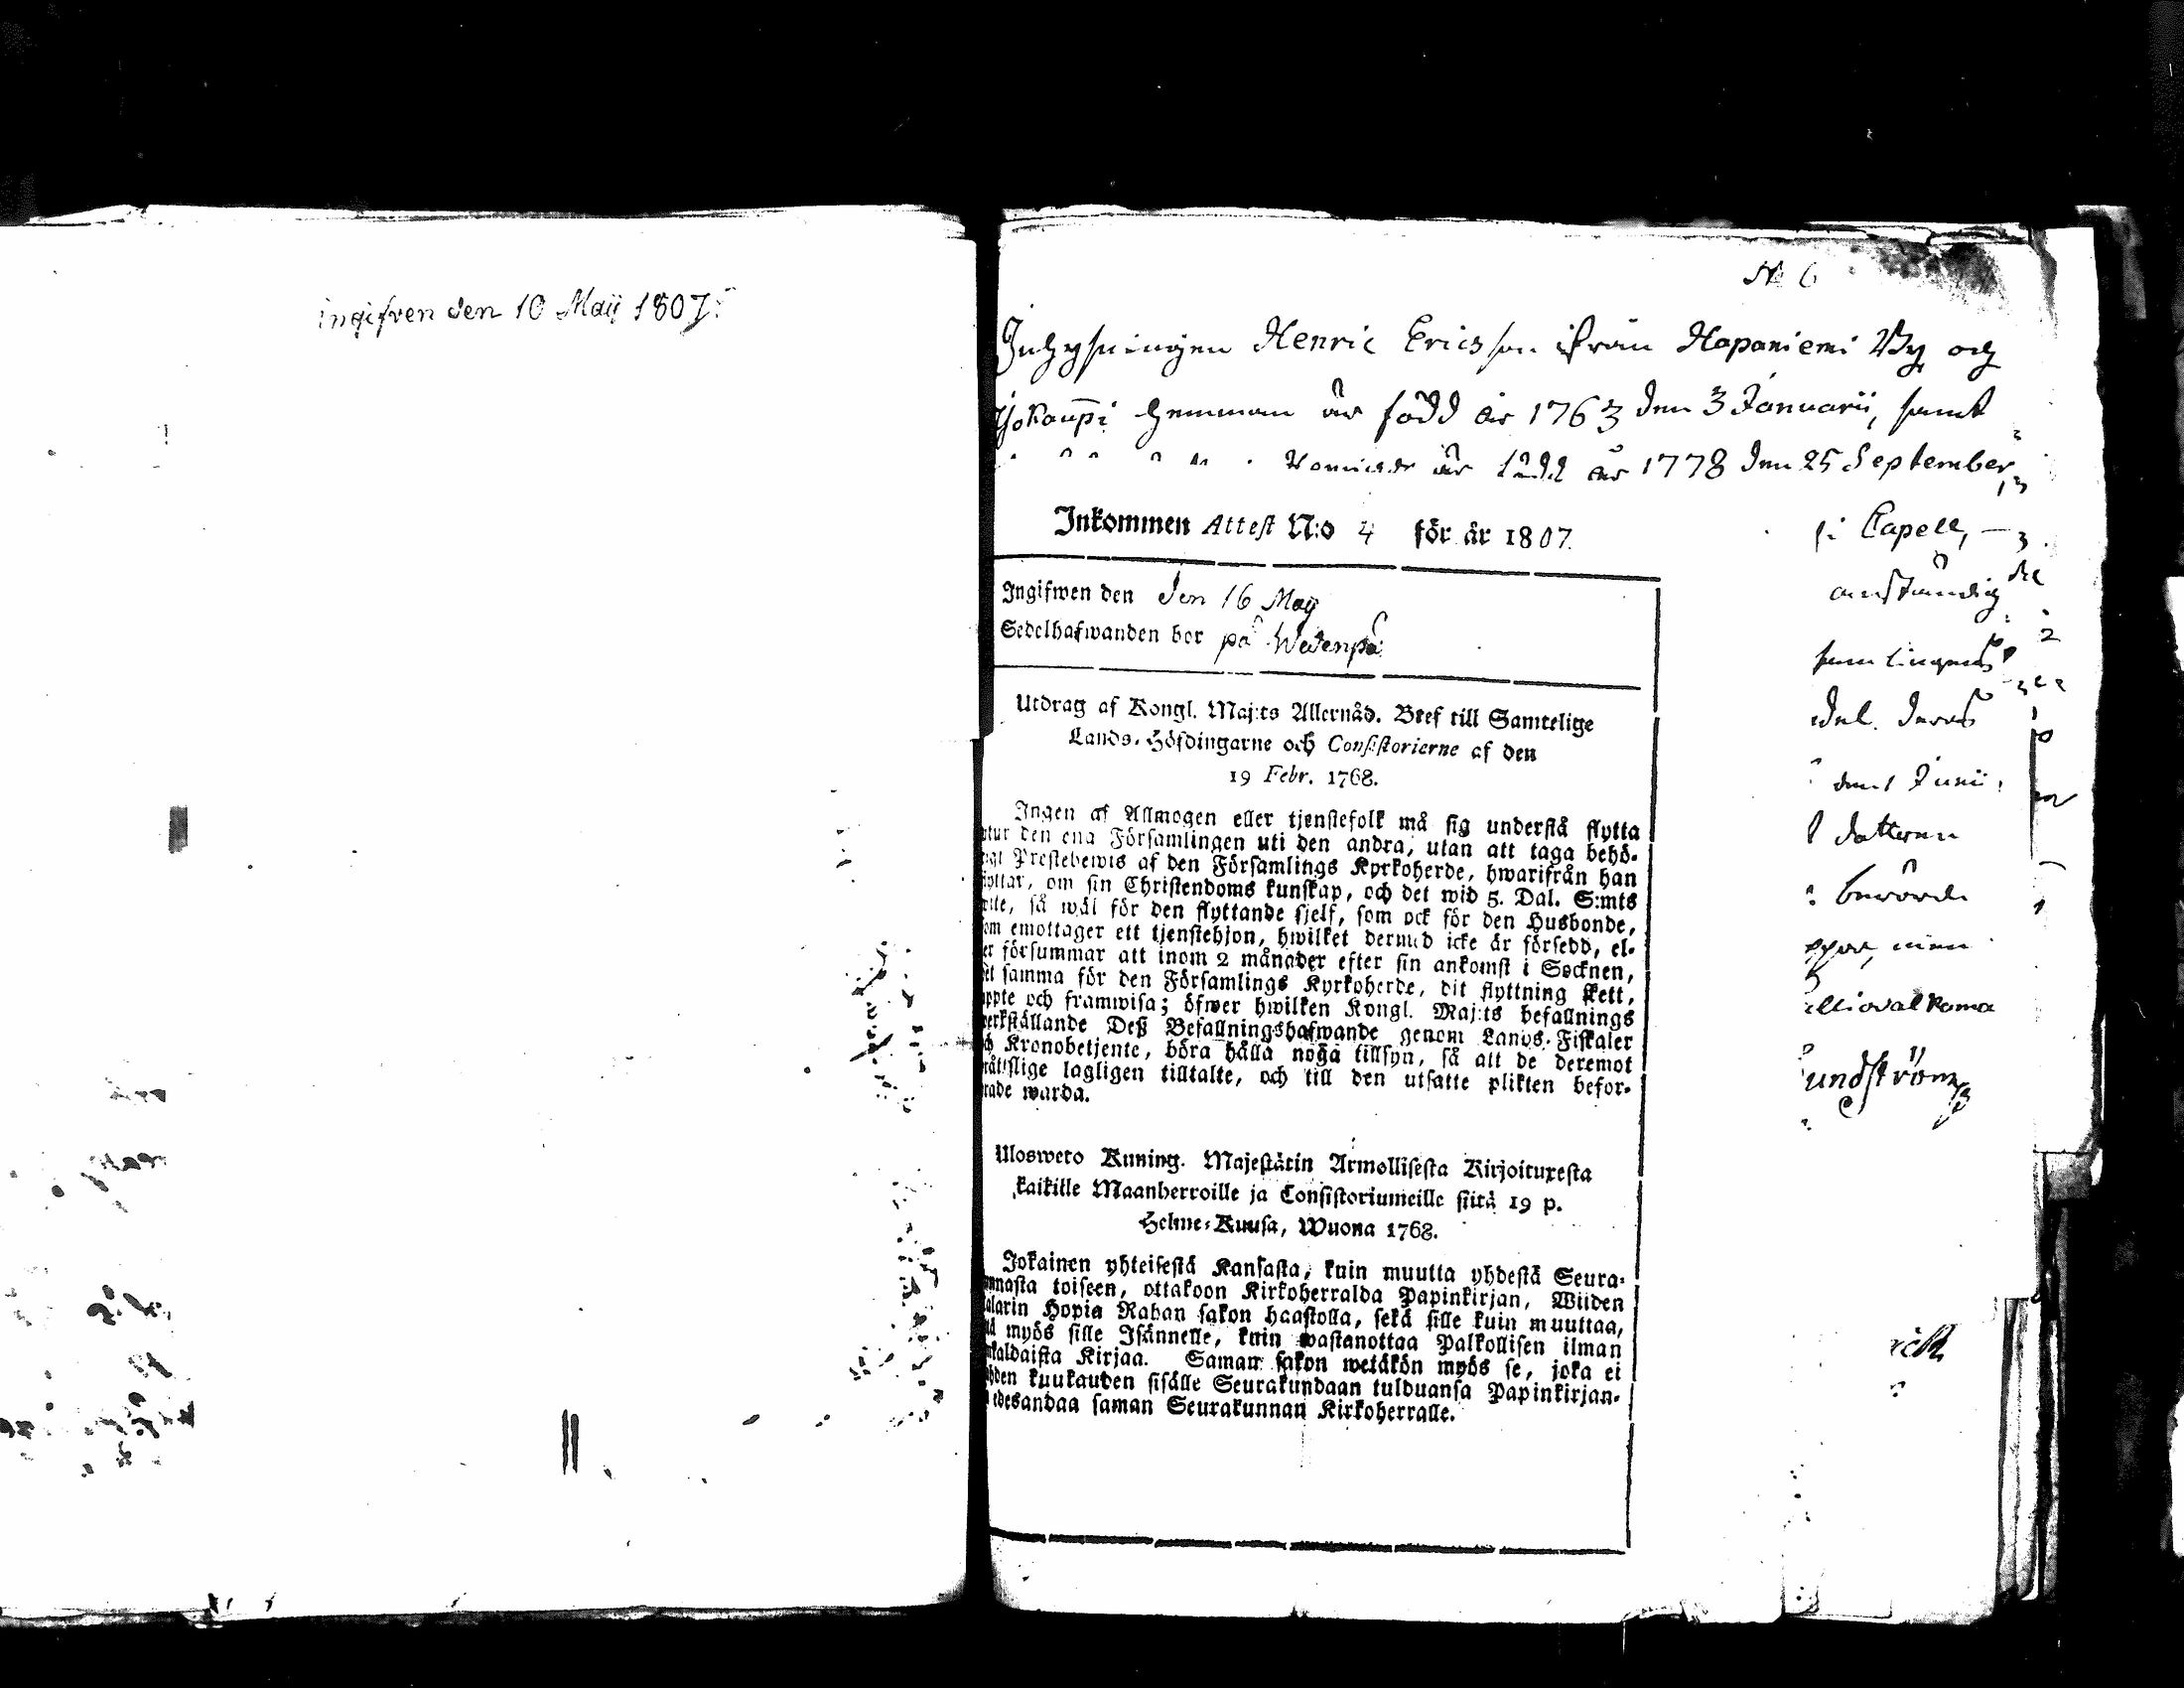 ingifven den 10 Maij 1807.
№ 6
Inhysningen Henric Ericsson ifrån Hapaniemi By och
hemman är född år 1763 den 3 Januarii, samt
är född år 1778 den 25 September,
Inkommen Attest N:o 4 för år 1807.
Capell,
anständig
Ingifwen den den 16 Maij
Sedelhafwanden bor på Wedenpä
Utdrag af Kongl. Maj:ts Allernåd. Bref till Samtelige
Lands-Höfdingarne och Consistorierne af den
19 Febr. 1768.
Ingen af Allmogen eller tjenstefolk må sig understå flytta
utur den ena Församlingen uti den andra, utan att taga behö-
rigt Prestebewis af den Församlings Kyrkoherde, hwarifrån han
flyttar, om sin Christendoms kunskap, och det wid 5. Dal. S:mts
wite, så wäl för den flyttande sjelf, som ock för den Husbonde,
som emottager ett tjenstehjon, hwilket dermed icke är försedd, el-
er försummar att inom 2 månader efter sin ankomst i Socknen,
samma för den Församlings Kyrkoherde, dit flyttning skett,
uppte och framwisa; öfwer hwilken Kongl. Maj:ts befallnings
werkställande Deß Befallningshafwande genom Lands-Fiskaler
och Kronobetjente, böra hålla noga tillsyn, så att de deremot
lagligen tilltalte, och till den utsatte plikten befor-
rade warda.
Ulosweto Kuning. Majestätin Armollisesta Kirjoituxesta
kaikille Maanherroille ja Consistoriumeille siitä 19 p.
Helme-Kuusa, Wuona 1768.
Jokainen yhteisestä Kansasta, kuin muutta yhdestä Seura-
nnasta toiseen, ottakoon Kirkoherralda Papinkirjan, Wiiden
alarin Hopia Rahan sakon haastolla, sekä sille kuin muuttaa,
myös sille Isännelle, kuin wastanottaa Palkollisen ilman
nkaldaista Kirjaa. Saman sakon wetäkön myös se, joka ei
hden kuukauden sisälle Seurakundaan tulduansa Papinkirjan-
edesandaa saman Seurakunnan Kirkoherralle.
den 1 Junii
dottren
undström